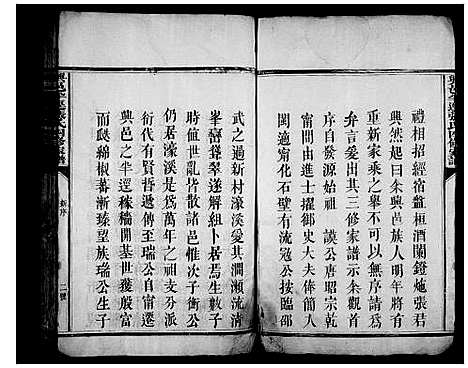 禮相招經宿盤桓酒闌鐙灺張君
興然起曰余興邑族人明年將有
重修之舉不可以無序請為
之序爰出其三修家譜示余觀首
自發源始祖 諱公唐昭宗乾
甯間由進士擢御史大夫俸簡人
閩適甯化石壁有流寇公按臨邵
武之過新村濠溪愛其澗瀨流清
峯巒聳翠遂解組卜居焉生數子
時值雌亂皆散諸邑惟次子衡公
仍居濠溪是為萬年之記分派
代有賢哲遞傳至瑞公自甯遷
興邑之芊逕稼穡開基世獲殷富
而瓞綿椒蕃漸臻望族瑞公生子
新序
二號